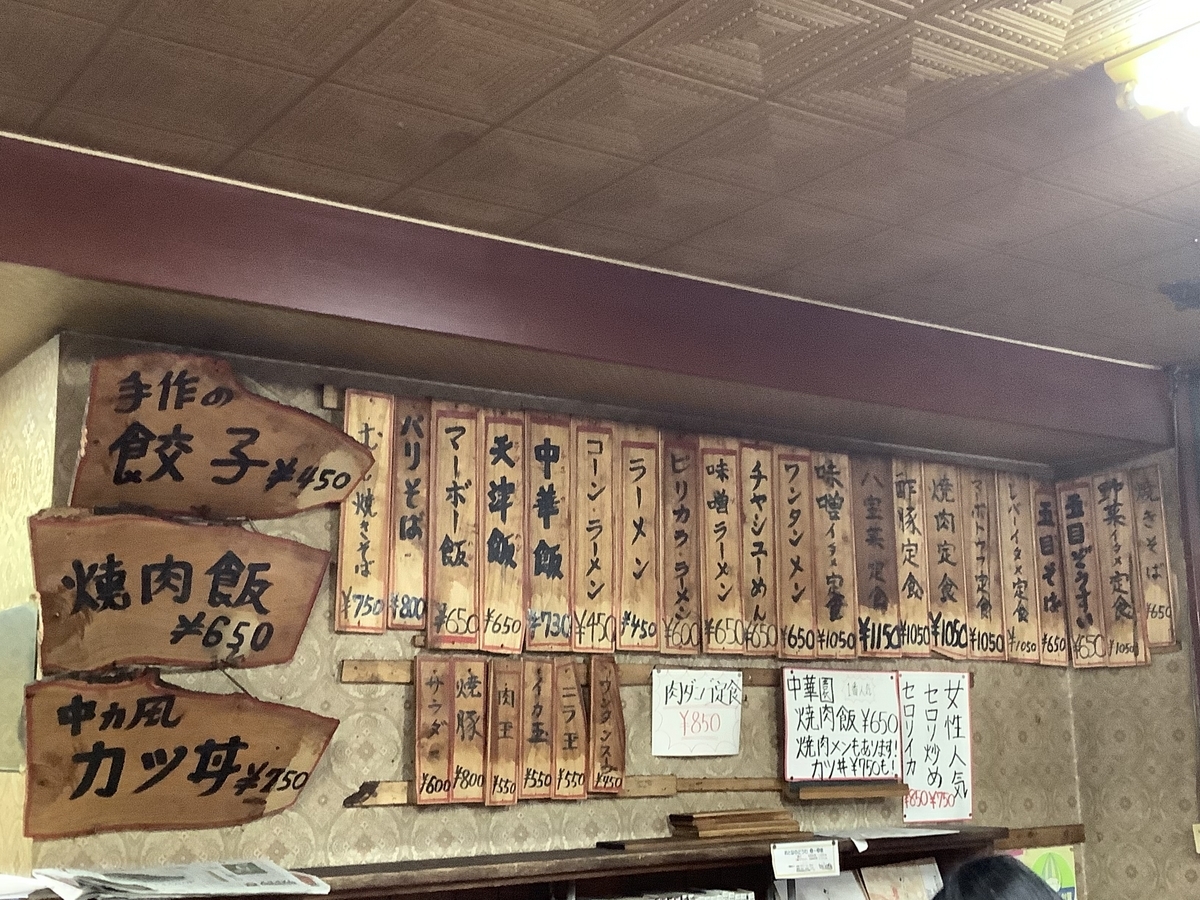 手作の
餃子 ¥450
焼肉飯
¥650
中カ風
カツ丼 ¥750
焼きそば ¥750
バリそば ¥800
マーボー飯 ¥650
天津飯 ¥650
中華飯 ¥730
コーン・ラーメン ¥450
ラーメン ¥450
ピリカラ・ラーメン ¥600
味噌ラーメン ¥650
チャシューめん ¥650
ワンタンメン ¥650
味噌イタメ定食 ¥1050
八宝菜定食 ¥1150
酢豚定食 ¥1050
焼肉定食 ¥1050
マーボトウフ定食 ¥1050
レバーイタメ定食 ¥1050
五目そば ¥650
五目ぞうすい ¥650
野菜イタメ定食 ¥1050
焼きそば ¥650
サラダ ¥600
焼豚 ¥800
肉玉 ¥550
イカ玉 ¥550
ニラ玉 ¥550
ワンタンスープ ¥450
肉ダンゴ定食
¥850
中華園 1番人気
焼肉飯 ¥650
焼肉メンもあります!
カツ丼 ¥750も!
女性人気
セロリ炒め ¥750
セロリイカ ¥850